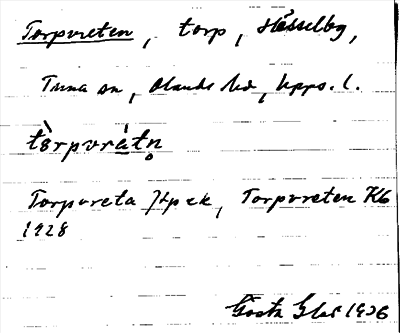 Torpvreten, torp, Hässelby,
Tuna sn, Olands hd, Upps. l.
tòrpvrátn̥
Torpvreta Jtpek, Torpvreten Kb
1928
Gösta 1926